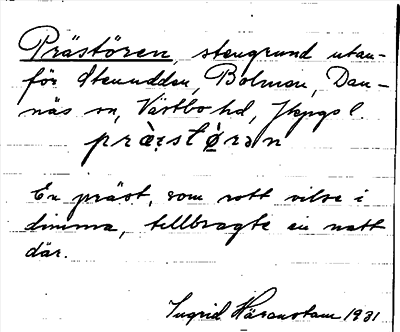 Prästören, stengrund utan-
för Stenudden, Bolmen, Dan-
näs sn, Västbo hd, Jkpgs l.
præ̀stø̀rən
En präst, som rott vilse i
dimma, tillbragte en natt
där.
Ingrid 1931